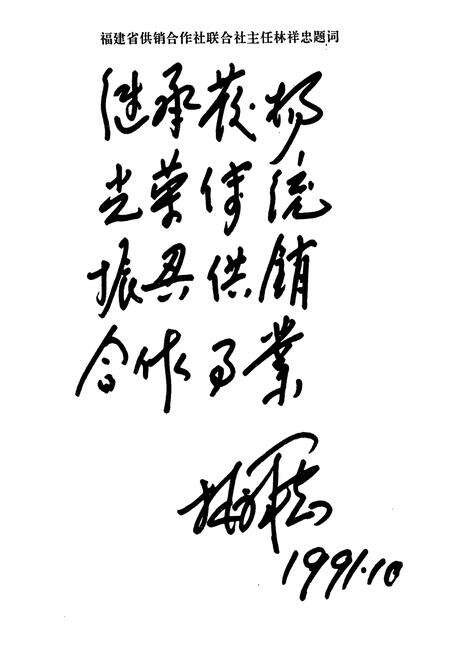 福建省供销合作社联合社主任林祥忠题词
继承发扬
光荣传统
振兴供销
合作事业
林祥忠
1991.10